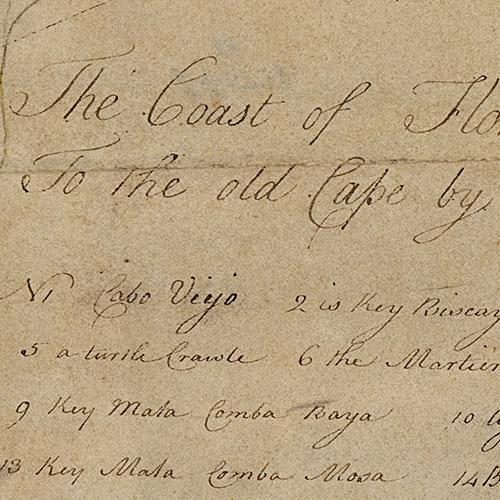 The Coast of Flo
To the old Cape by
N1 Cabo Viejo 2 is Key Biscay
5 a turtle Crawle 6 the Martier
9 Key Mata Comba Baya 10
13 Key Mata Comba Mosa 14 B